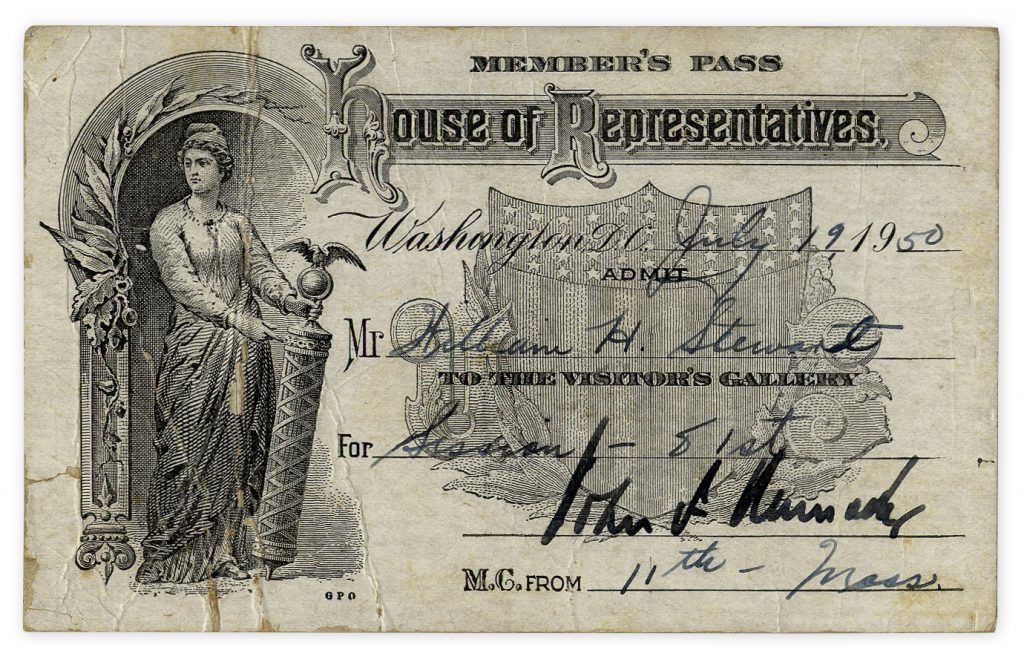 MEMBER'S PASS
House of Representatives.
Washington D.C. July 19, 1950
ADMIT
Mr William H. Stewart
TO THE VISITOR'S GALLERY
For Session - 81st
John F Kennedy
M.C. FROM 11th - Mass.
GPO